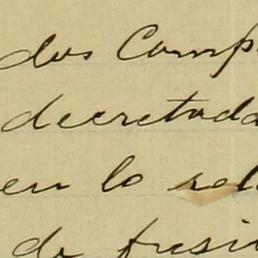 dos Comp
decretada
en lo rel
de presi